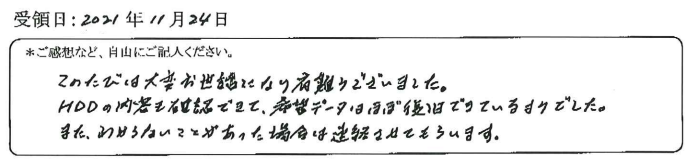 受領日: 2021 年 11 月 24 日
*ご感想など、自由にご記入ください。
このたびは大変お世話になり有難うございました。
HDDの内容も確認できて、希望データはほぼ復旧できているようでした。
また、わからないことがあった場合は連絡させてもらいます。